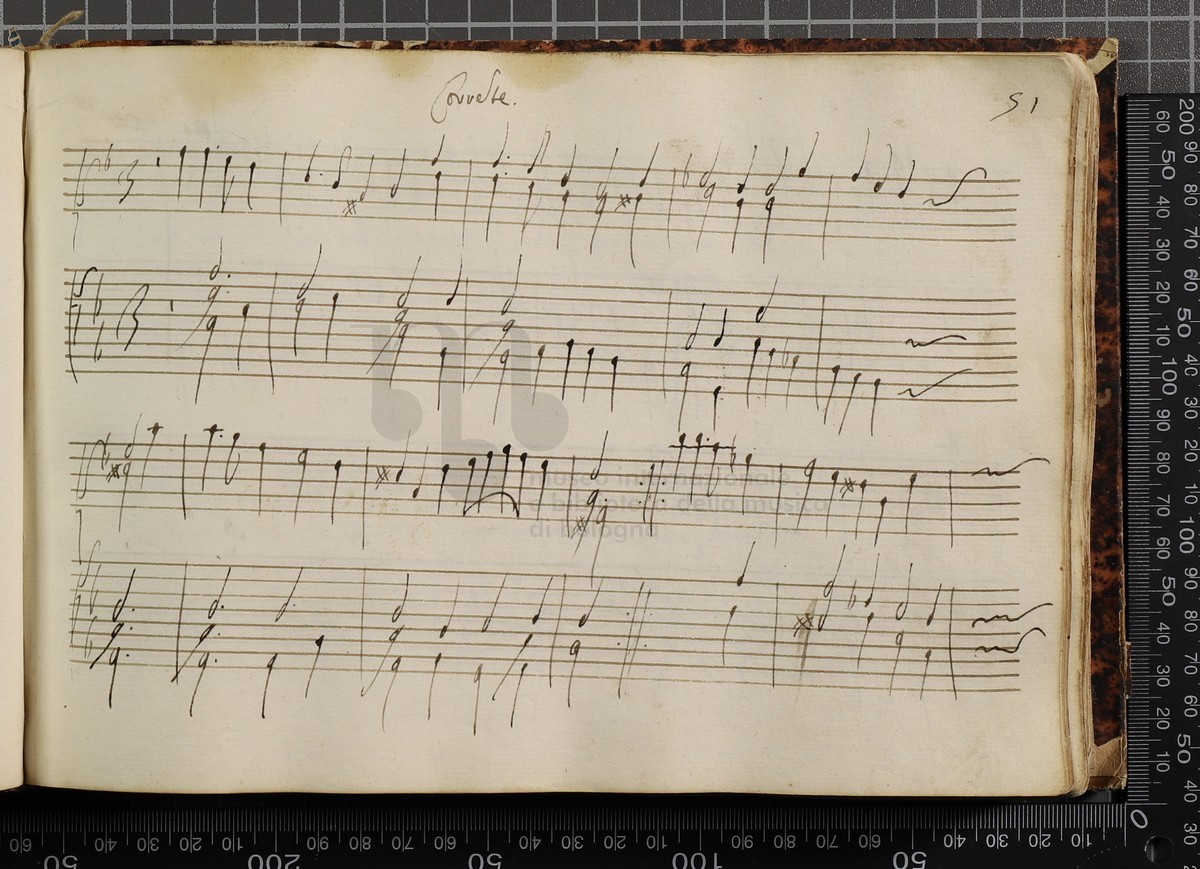 Corrente.
51
museo internazionale
e biblioteca della musica
di bologna